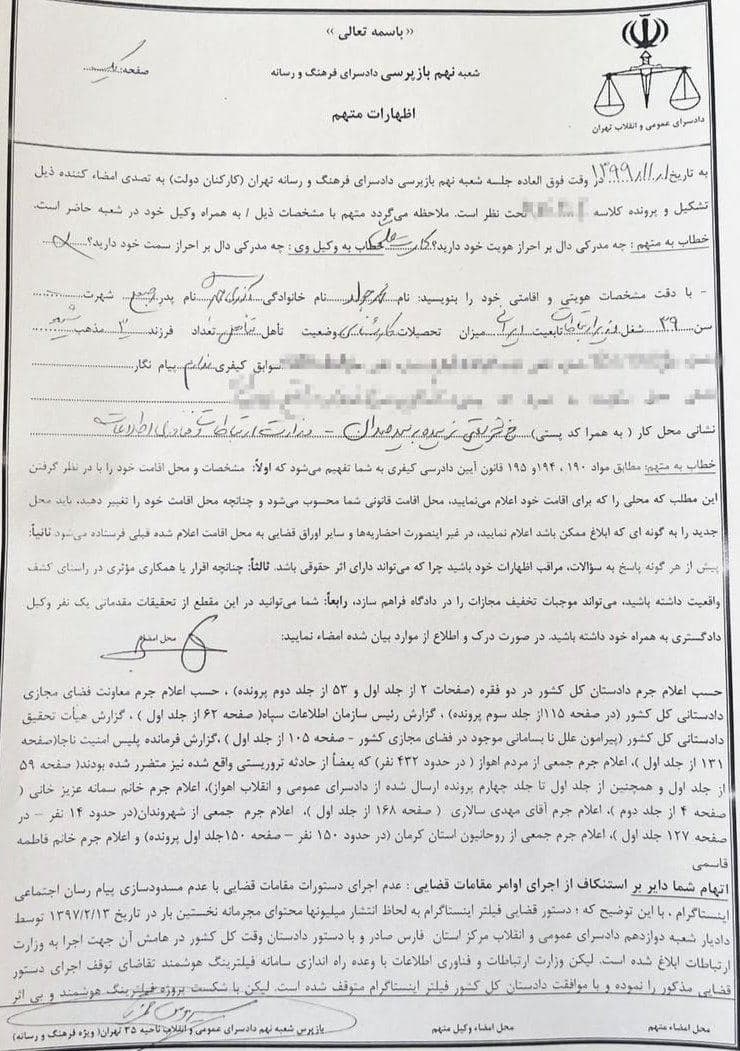 « باسمه تعالی »
شعبه نهم بازپرسی دادسرای فرهنگ و رسانه
صفحه: یک
اظهارات متهم
دادسرای عمومی و انقلاب تهران
به تاریخ ۱۳۹۹/۱۱/۱ در وقت فوق العاده جلسه شعبه نهم بازپرسی دادسرای فرهنگ و رسانه تهران (کارکنان دولت) به تصدی امضاء کننده ذیل
تشکیل و پرونده کلاسه تحت نظر است. ملاحظه می‌گردد متهم با مشخصات ذیل / به همراه وکیل خود در شعبه حاضر است.
خطاب به متهم: چه مدرکی دال بر احراز هویت خود دارید؟ کارت ملی خطاب به وکیل وی: چه مدرکی دال بر احراز سمت خود دارید؟
- با دقت مشخصات هویتی و اقامتی خود را بنویسید: نام محمدجواد نام خانوادگی آذری جهرمی نام پدر شهرت
سن ۳۹ شغل وزیر ارتباطات تابعیت ایرانی میزان تحصیلات کارشناسی وضعیت تأهل متاهل تعداد فرزند ۳ مذهب شیعه
سوابق کیفری ندارم پیام نگار
نشانی محل کار ( به همرا کد پستی) خ شریعتی نرسیده به سیدخندان - وزارت ارتباطات و فناوری اطلاعات
خطاب به متهم: مطابق مواد ۱۹۰ ، ۱۹۴و ۱۹۵ قانون آیین دادرسی کیفری به شما تفهیم می‌شود که اولاً: مشخصات و محل اقامت خود را با در نظر گرفتن
این مطلب که محلی را که برای اقامت خود اعلام می‌نمایید، محل اقامت قانونی شما محسوب می‌شود و چنانچه محل اقامت خود را تغییر دهید، باید محل
جدید را به گونه ای که ابلاغ ممکن باشد اعلام نمایید، در غیر اینصورت احضاریه‌ها و سایر اوراق قضایی به محل اقامت اعلام شده قبلی فرستاده می‌شود ثانیاً:
پیش از هر گونه پاسخ به سؤالات، مراقب اظهارات خود باشید چرا که می‌تواند دارای اثر حقوقی باشد. ثالثاً: چنانچه اقرار یا همکاری مؤثری در راستای کشف
واقعیت داشته باشید، می‌تواند موجبات تخفیف مجازات را در دادگاه فراهم سازد، رابعاً: شما می‌توانید در این مقطع از تحقیقات مقدماتی یک نفر وکیل
دادگستری به همراه خود داشته باشید. در صورت درک و اطلاع از موارد بیان شده امضاء نمایید: محل امضاء
حسب اعلام جرم دادستان کل کشور در دو فقره (صفحات ۲ از جلد اول و ۵۳ از جلد دوم پرونده) ، حسب اعلام جرم معاونت فضای مجازی
دادستانی کل کشور (در صفحه ۱۱۵از جلد سوم پرونده) ، گزارش رئیس سازمان اطلاعات سپاه( صفحه ۶۲ از جلد اول ) ، گزارش هیأت تحقیق
دادستانی کل کشور (پیرامون علل نا بسامانی موجود در فضای مجازی کشور - صفحه ۱۰۵ از جلد اول) ،گزارش فرمانده پلیس امنیت ناجا(صفحه
۱۳۱ از جلد اول)، اعلام جرم جمعی از مردم اهواز ( در حدود ۴۳۲ نفر) که بعضاً از حادثه تروریستی واقع شده نیز متضرر شده بودند( صفحه ۵۹
از جلد اول و همچنین از جلد اول تا جلد چهارم پرونده ارسال شده از دادسرای عمومی و انقلاب اهواز)، اعلام جرم خانم سمانه عزیز خانی (
صفحه ۴ از جلد دوم )، اعلام جرم آقای مهدی سالاری ( صفحه ۱۶۸ از جلد اول )، اعلام جرم جمعی از شهروندان(در حدود ۱۴ نفر – در
صفحه ۱۲۷ جلد اول)، اعلام جرم جمعی از روحانیون استان کرمان (در حدود ۱۵۰ نفر – صفحه ۱۵۰جلد اول پرونده) و اعلام جرم خانم فاطمه
قاسمی
اتهام شما دایر بر استنکاف از اجرای اوامر مقامات قضایی : عدم اجرای دستورات مقامات قضایی با عدم مسدودسازی پیام رسان اجتماعی
اینستاگرام ، با این توضیح که ؛ دستور قضایی فیلتر اینستاگرام به لحاظ انتشار میلیونها محتوای مجرمانه نخستین بار در تاریخ ۱۳۹۷/۲/۱۳ توسط
دادیار شعبه دوازدهم دادسرای عمومی و انقلاب مرکز استان فارس صادر و با دستور دادستان وقت کل کشور در هامش آن جهت اجرا به وزارت
ارتباطات ابلاغ شده است. لیکن وزارت ارتباطات و فناوری اطلاعات با وعده راه اندازی سامانه فیلترینگ هوشمند تقاضای توقف اجرای دستور
قضایی مذکور را نموده و با موافقت دادستان کل کشور فیلتر اینستاگرام متوقف شده است. لیکن با شکست پروژه فیلترینگ هوشمند و بی اثر
محل امضاء متهم محل امضاء وکیل متهم بازپرس شعبه نهم دادسرای عمومی و انقلاب ناحیه ۳۵ تهران( ویژه فرهنگ و رسانه)